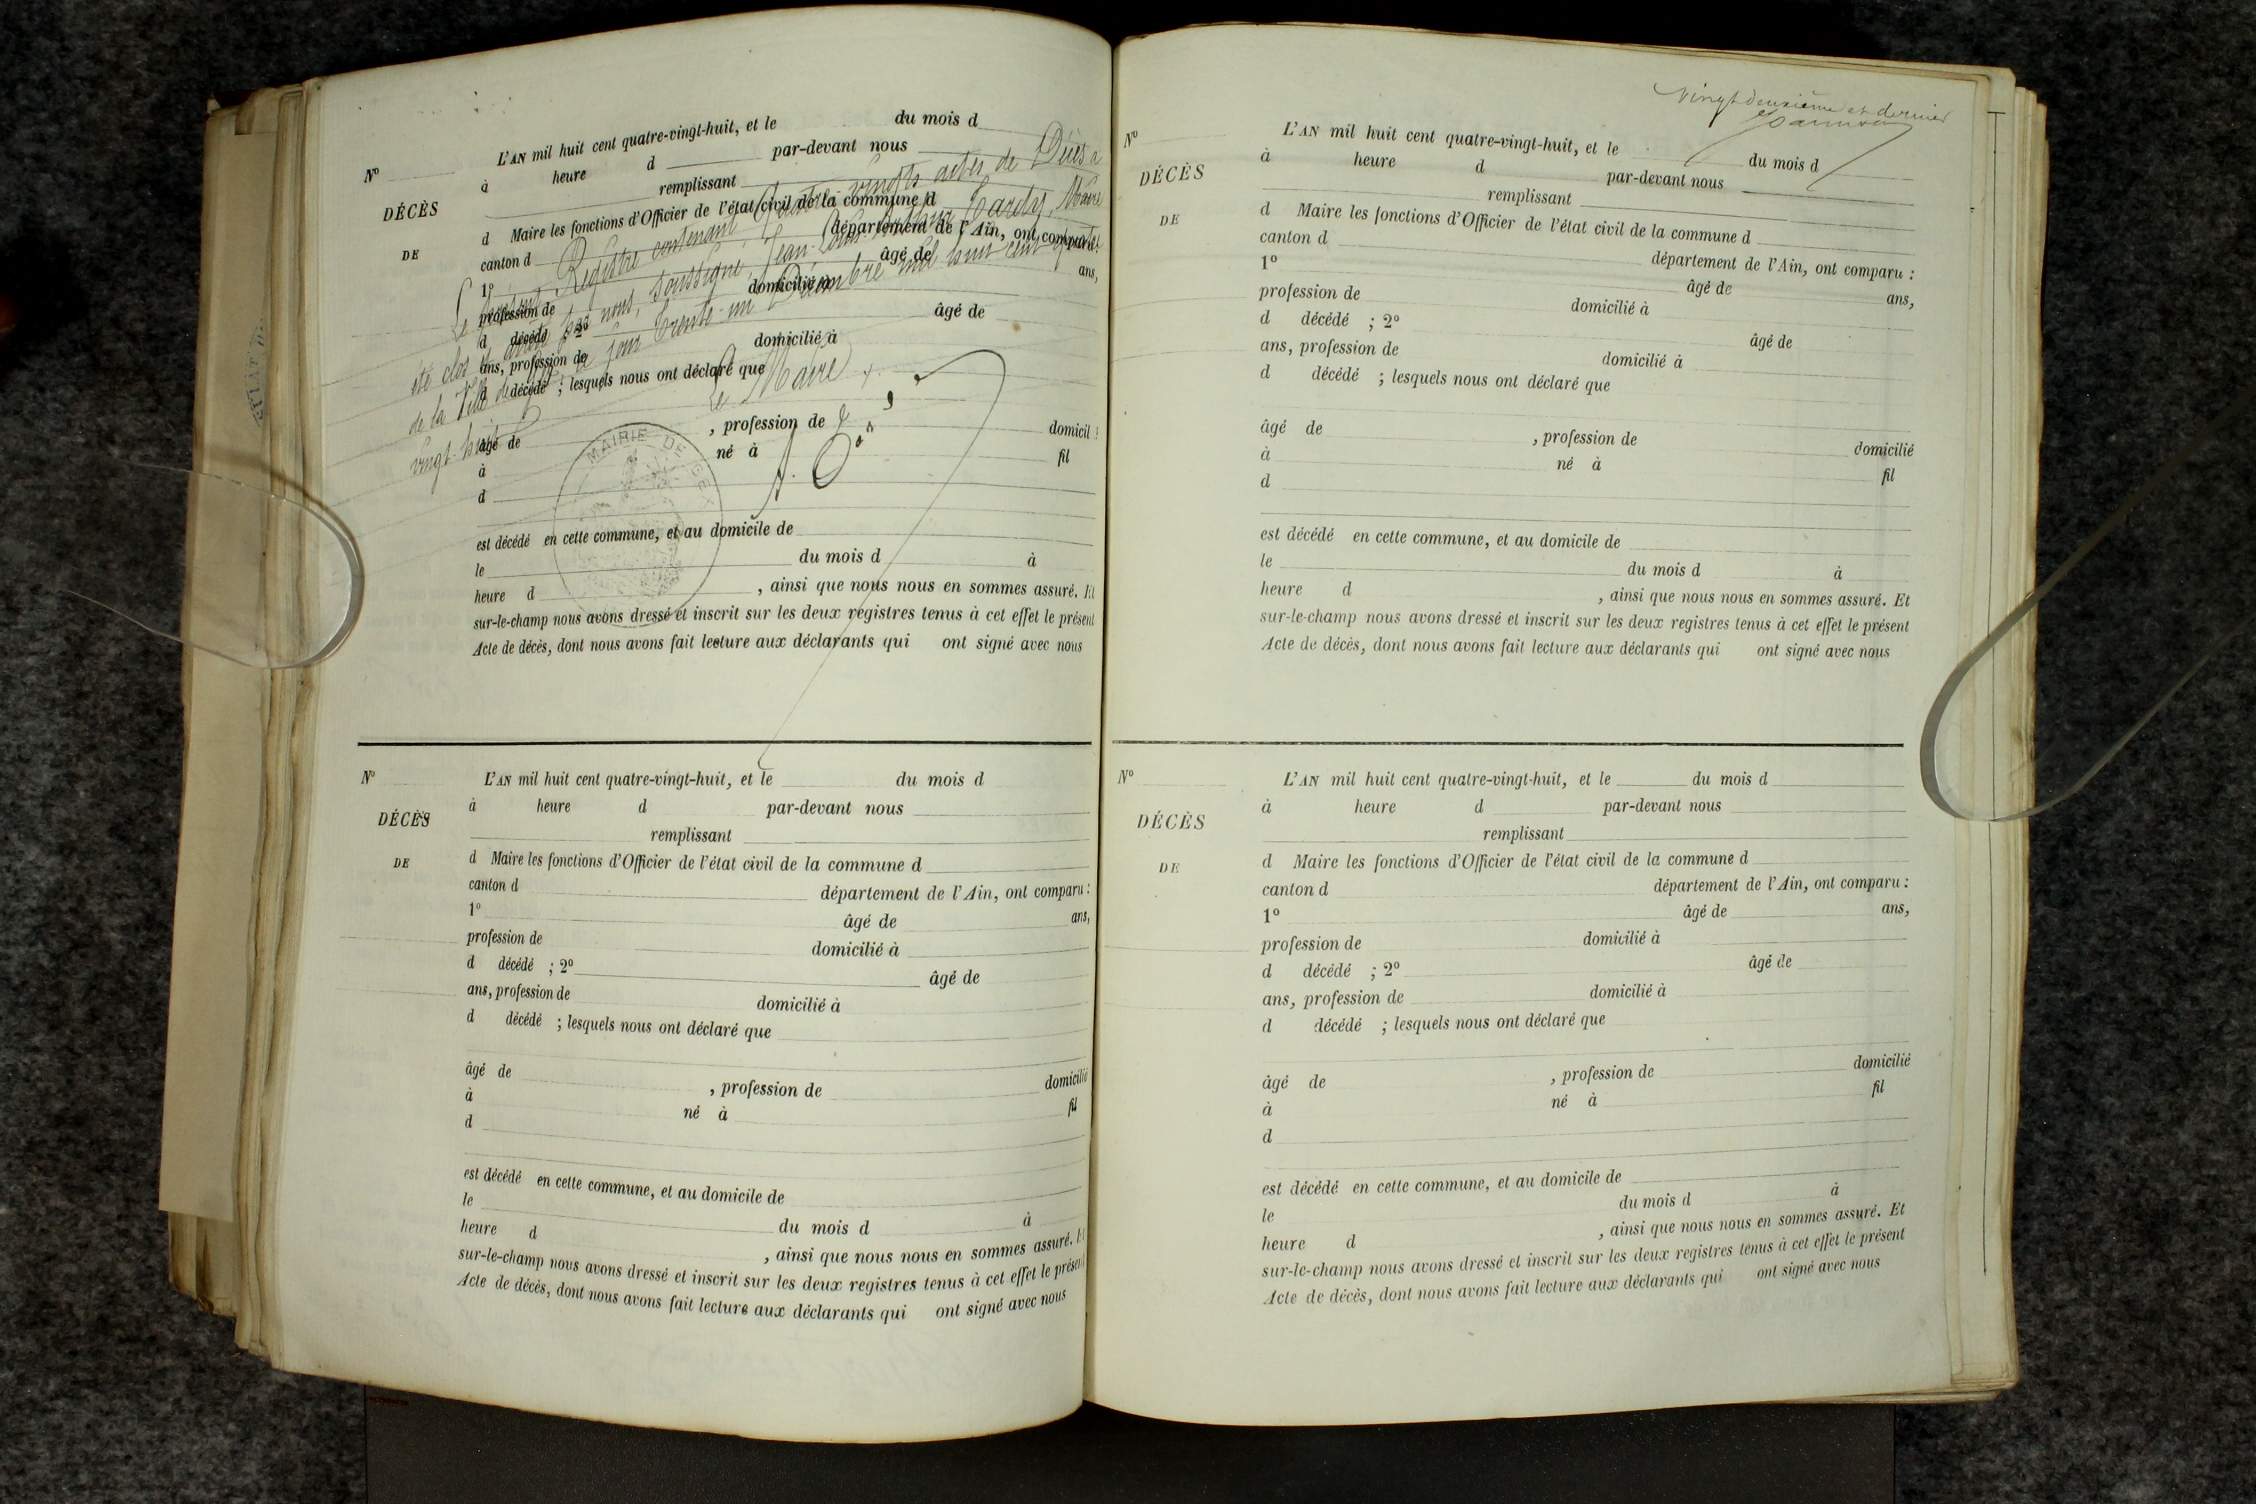 N° L'AN mil huit cent quatre-vingt-huit, et le du mois d
à heure d par-devant nous
DÉCÈS remplissant
d Maire les fonctions d'Officier de l'état civil de la commune d
DE canton d département de l'Ain, ont comparu :
1° âgé de ans,
profession de domicilié à
d décédé ; 2° âgé de
ans, profession de domicilié à
d décédé ; lesquels nous ont déclaré que
âgé de , profession de domicilié
à né à fil
d
est décédé en cette commune, et au domicile de
le du mois d à
heure d , ainsi que nous nous en sommes assuré. Et
sur-le-champ nous avons dressé et inscrit sur les deux registres tenus à cet effet le présent
Acte de décès, dont nous avons fait lecture aux déclarants qui ont signé avec nous
Le présent Registre contenant Quatre-vingts actes de Décès a
été clos et arrêté par nous, soussigné, Jean-Louis Arthur Tardy, Maire
de la Ville de Gex, ce jour trente-un Décembre mil huit cent quatre
vingt-huit
Le Maire
MAIRIE DE GEX
N° L'AN mil huit cent quatre-vingt-huit, et le du mois d
à heure d par-devant nous
DÉCÈS remplissant
DE d Maire les fonctions d'Officier de l'état civil de la commune d
canton d département de l'Ain, ont comparu :
1° âgé de ans,
profession de domicilié à
d décédé ; 2° âgé de
ans, profession de domicilié à
d décédé ; lesquels nous ont déclaré que
âgé de , profession de domicilié
à né à fil
d
est décédé en cette commune, et au domicile de
le du mois d à
heure d , ainsi que nous nous en sommes assuré. Et
sur-le-champ nous avons dressé et inscrit sur les deux registres tenus à cet effet le présent
Acte de décès, dont nous avons fait lecture aux déclarants qui ont signé avec nous
Vingt deuxième et dernier
N° L'AN mil huit cent quatre-vingt-huit, et le du mois d
à heure d par-devant nous
DÉCÈS remplissant
DE d Maire les fonctions d'Officier de l'état civil de la commune d
canton d département de l'Ain, ont comparu :
1° âgé de ans,
profession de domicilié à
d décédé ; 2° âgé de
ans, profession de domicilié à
d décédé ; lesquels nous ont déclaré que
âgé de , profession de domicilié
à né à fil
d
est décédé en cette commune, et au domicile de
le du mois d à
heure d , ainsi que nous nous en sommes assuré. Et
sur-le-champ nous avons dressé et inscrit sur les deux registres tenus à cet effet le présent
Acte de décès, dont nous avons fait lecture aux déclarants qui ont signé avec nous
N° L'AN mil huit cent quatre-vingt-huit, et le du mois d
à heure d par-devant nous
DÉCÈS remplissant
DE d Maire les fonctions d'Officier de l'état civil de la commune d
canton d département de l'Ain, ont comparu :
1° âgé de ans,
profession de domicilié à
d décédé ; 2° âgé de
ans, profession de domicilié à
d décédé ; lesquels nous ont déclaré que
âgé de , profession de domicilié
à né à fil
d
est décédé en cette commune, et au domicile de
le du mois d à
heure d , ainsi que nous nous en sommes assuré. Et
sur-le-champ nous avons dressé et inscrit sur les deux registres tenus à cet effet le présent
Acte de décès, dont nous avons fait lecture aux déclarants qui ont signé avec nous